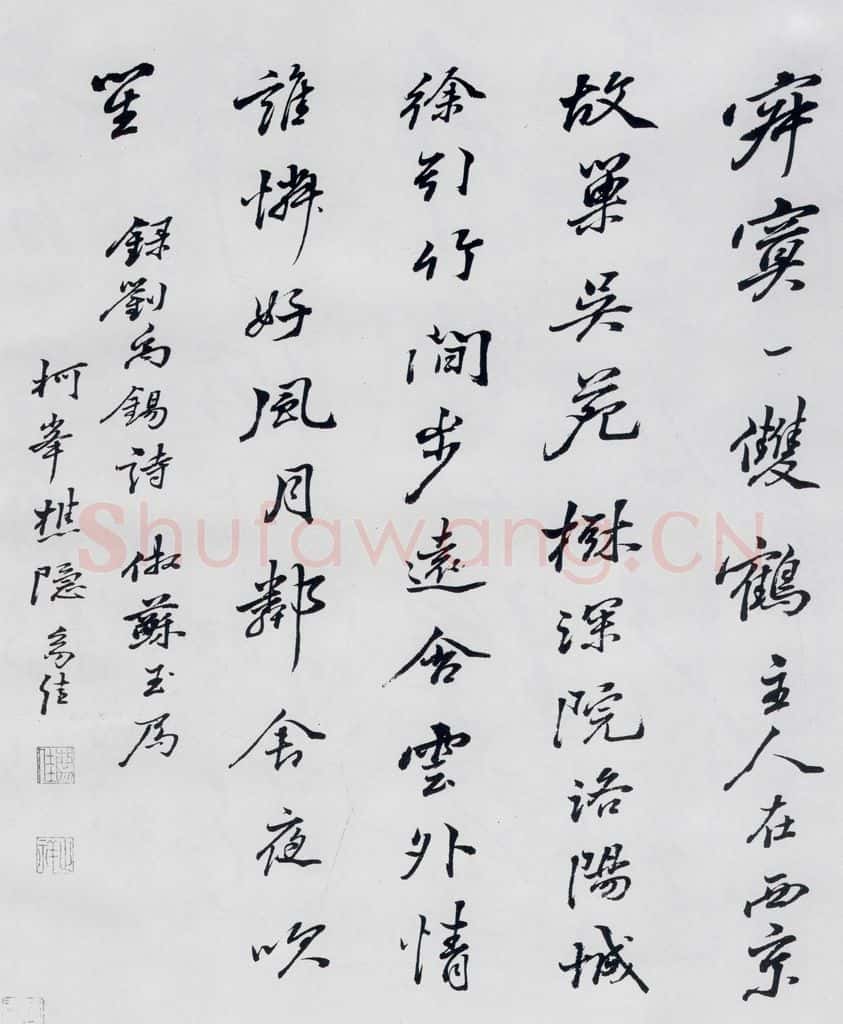 寂寞一雙鶴主人在西京
故巢吳苑樹深院洛陽城
徐引竹間步遠含雲外情
誰憐好風月鄰舍夜吹
笙 錄劉禹錫詩 倣蘇玉局
柯峯樵隱 佳
Shufawang.CN